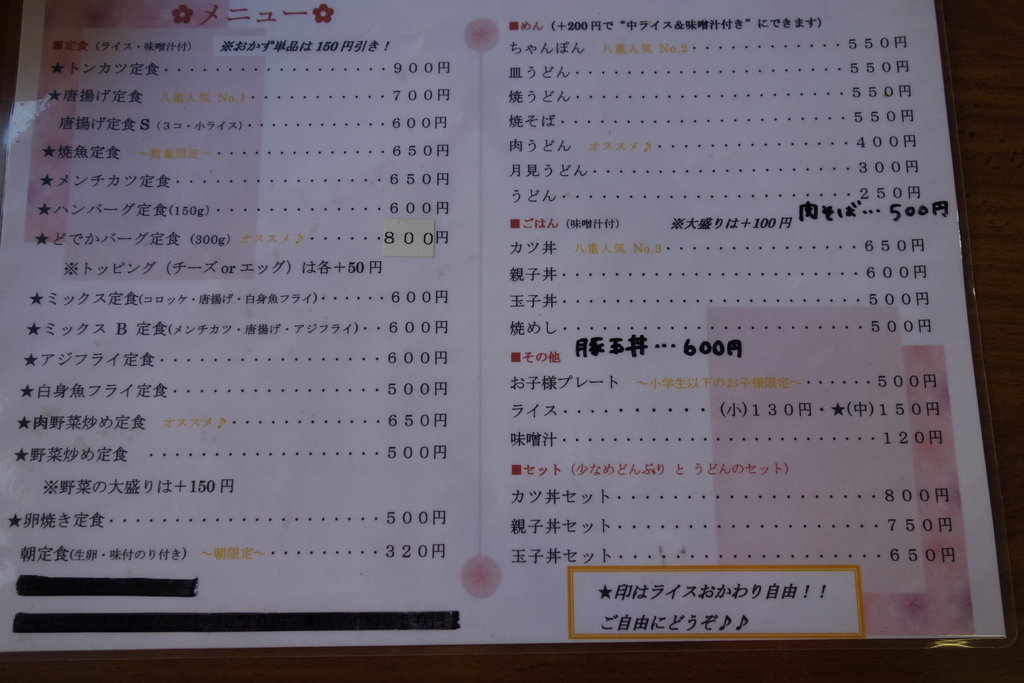 ✿メニュー✿
■定食（ライス・味噌汁付） ※おかず単品は150円引き！
★トンカツ定食・・・・・・・・・・・・・・・・・・・900円
★唐揚げ定食 八重人気 No.1・・・・・・・・・・・・700円
唐揚げ定食S（3コ・小ライス）・・・・・・・・・・・・600円
★焼魚定食 ～数量限定～・・・・・・・・・・・・・・650円
★メンチカツ定食・・・・・・・・・・・・・・・・・・650円
★ハンバーグ定食(150g)・・・・・・・・・・・・・・・600円
★どでかバーグ定食（300g）オススメ♪・・・・・・800円
※トッピング（チーズ or エッグ）は各＋50円
★ミックス定食(コロッケ・唐揚げ・白身魚フライ)・・・・・・600円
★ミックス B 定食(メンチカツ・唐揚げ・アジフライ)・・600円
★アジフライ定食・・・・・・・・・・・・・・・・・・・600円
★白身魚フライ定食・・・・・・・・・・・・・・・・・・500円
★肉野菜炒め定食 オススメ♪・・・・・・・・・・・・・650円
★野菜炒め定食 ・・・・・・・・・・・・・・・・・・・500円
※野菜の大盛りは＋150円
★卵焼き定食・・・・・・・・・・・・・・・・・・・・・500円
朝定食(生卵・味付のり付き) ～朝限定～・・・・・・・・・320円
■めん（＋200円で“中ライス＆味噌汁付き”にできます）
ちゃんぽん 八重人気 No.2・・・・・・・・・・・・550円
皿うどん・・・・・・・・・・・・・・・・・・・・550円
焼うどん・・・・・・・・・・・・・・・・・・・・550円
焼そば・・・・・・・・・・・・・・・・・・・・・550円
肉うどん オススメ♪・・・・・・・・・・・・・・400円
月見うどん・・・・・・・・・・・・・・・・・・・300円
うどん・・・・・・・・・・・・・・・・・・・・・250円
肉そば…500円
■ごはん（味噌汁付） ※大盛りは＋100円
カツ丼 八重人気 No.3・・・・・・・・・・・・・・650円
親子丼・・・・・・・・・・・・・・・・・・・・・600円
玉子丼・・・・・・・・・・・・・・・・・・・・・500円
焼めし・・・・・・・・・・・・・・・・・・・・・500円
豚玉丼…600円
■その他
お子様プレート ～小学生以下のお子様限定～・・・・・・500円
ライス・・・・・・・・・・(小)130円・★(中)150円
味噌汁・・・・・・・・・・・・・・・・・・・・・120円
■セット（少なめどんぶり と うどんのセット）
カツ丼セット・・・・・・・・・・・・・・・・・・800円
親子丼セット・・・・・・・・・・・・・・・・・・750円
玉子丼セット・・・・・・・・・・・・・・・・・・650円
★印はライスおかわり自由！！
ご自由にどうぞ♪♪